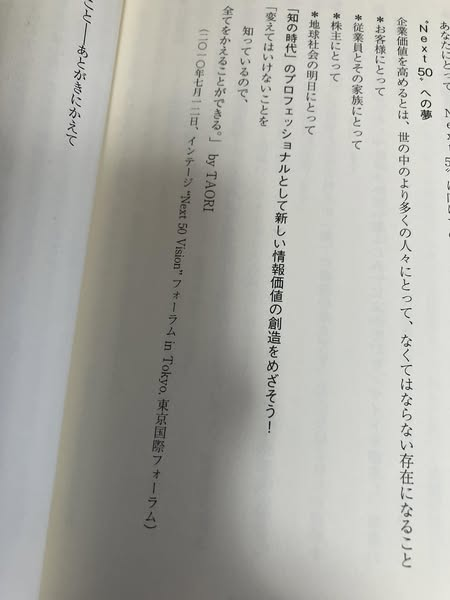 あなたにとって
"Next 50"への夢
企業価値を高めるとは、世の中のより多くの人々にとって、なくてはならない存在になること
＊お客様にとって
＊従業員とその家族にとって
＊株主にとって
＊地球社会の明日にとって
「知の時代」のプロフェッショナルとして新しい情報価値の創造をめざそう！
「変えてはいけないことを
知っているので、
全てをかえることができる。」 by TAORI
（二〇一〇年七月一二日、インテージ"Next 50 Vision"フォーラム in Tokyo. 東京国際フォーラム）
こと――あとがきにかえて